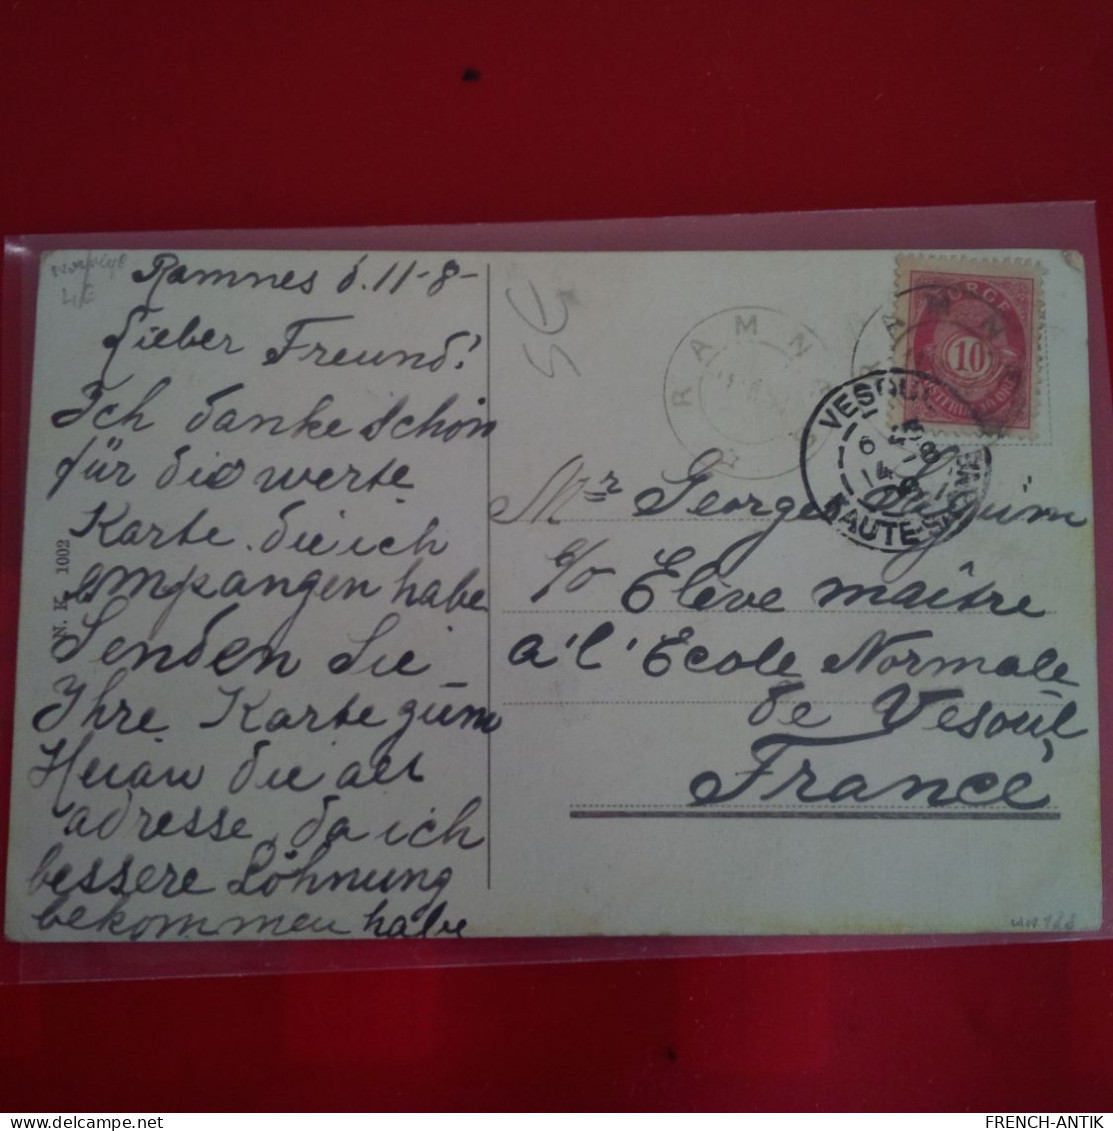 Ramnes d. 11-8-
Lieber Freund!
Ich danke schön
für die werte
Karte. die ich
empfangen habe
Senden Sie
Ihre Karte zum
die alt
adresse, da ich
bessere Löhnung
bekommen habe
W. K. 1002
5€
RAMNES
RAMNES
NORGE
10
VESOUL
HAUTE-SAONE
Mr Georges
c/o Elève maître
a'l'Ecole Normale
de Vesoul,
France
FRENCH-ANTIK